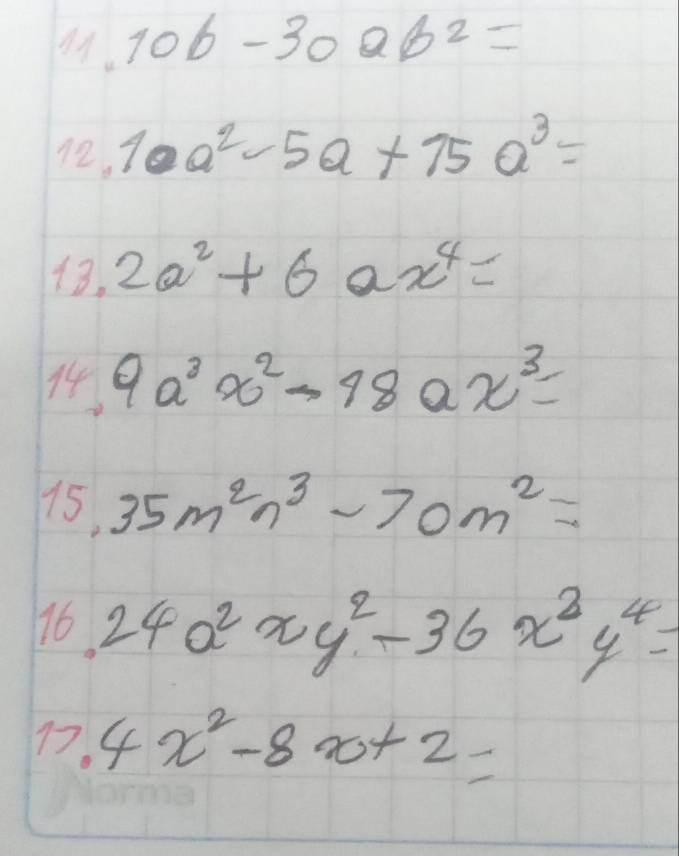 11. 10b - 30ab² =
12. 10a² - 5a + 15a³ =
13. 2a² + 6ax⁴ =
14. 9a³x² - 18ax³ =
15. 35m²n³ - 70m² =
16. 24a²xy² - 36x²y⁴ =
17. 4x² - 8x + 2 =
Norma